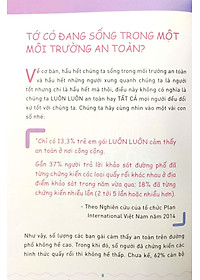 TỚ CÓ ĐANG SỐNG TRONG MỘT
MÔI TRƯỜNG AN TOÀN?
Về cơ bản, hầu hết chúng ta sống trong môi trường an toàn
và hầu hết những người xung quanh chúng ta là người
tốt nhưng chỉ là hầu hết mà thôi, điều này không có nghĩa là
chúng ta LUÔN LUÔN an toàn hay TẤT CẢ mọi người đều đối
xử tốt với chúng ta. Chúng ta hãy cùng nhìn vào một vài con
số nhé:
"Chỉ có 13,3% trẻ em gái LUÔN LUÔN cảm thấy
an toàn ở nơi công cộng.
Gần 37% người trả lời khảo sát đường phố đã
từng chứng kiến các loại quấy rối khác nhau ở địa
điểm khảo sát trong năm vừa qua: 18% đã từng
chứng kiến nhiều lần (2 tới 5 lần hoặc nhiều hơn).
- Theo Nghiên cứu của tổ chức Plan
International Việt Nam năm 2014
Như vậy, số lượng các bạn gái cảm thấy an toàn trên đường
phố không hề cao. Trong khi đó, số người đã chứng kiến các
hình thức quấy rối thì không hề ít. Chưa kể, 62% cán bộ
8